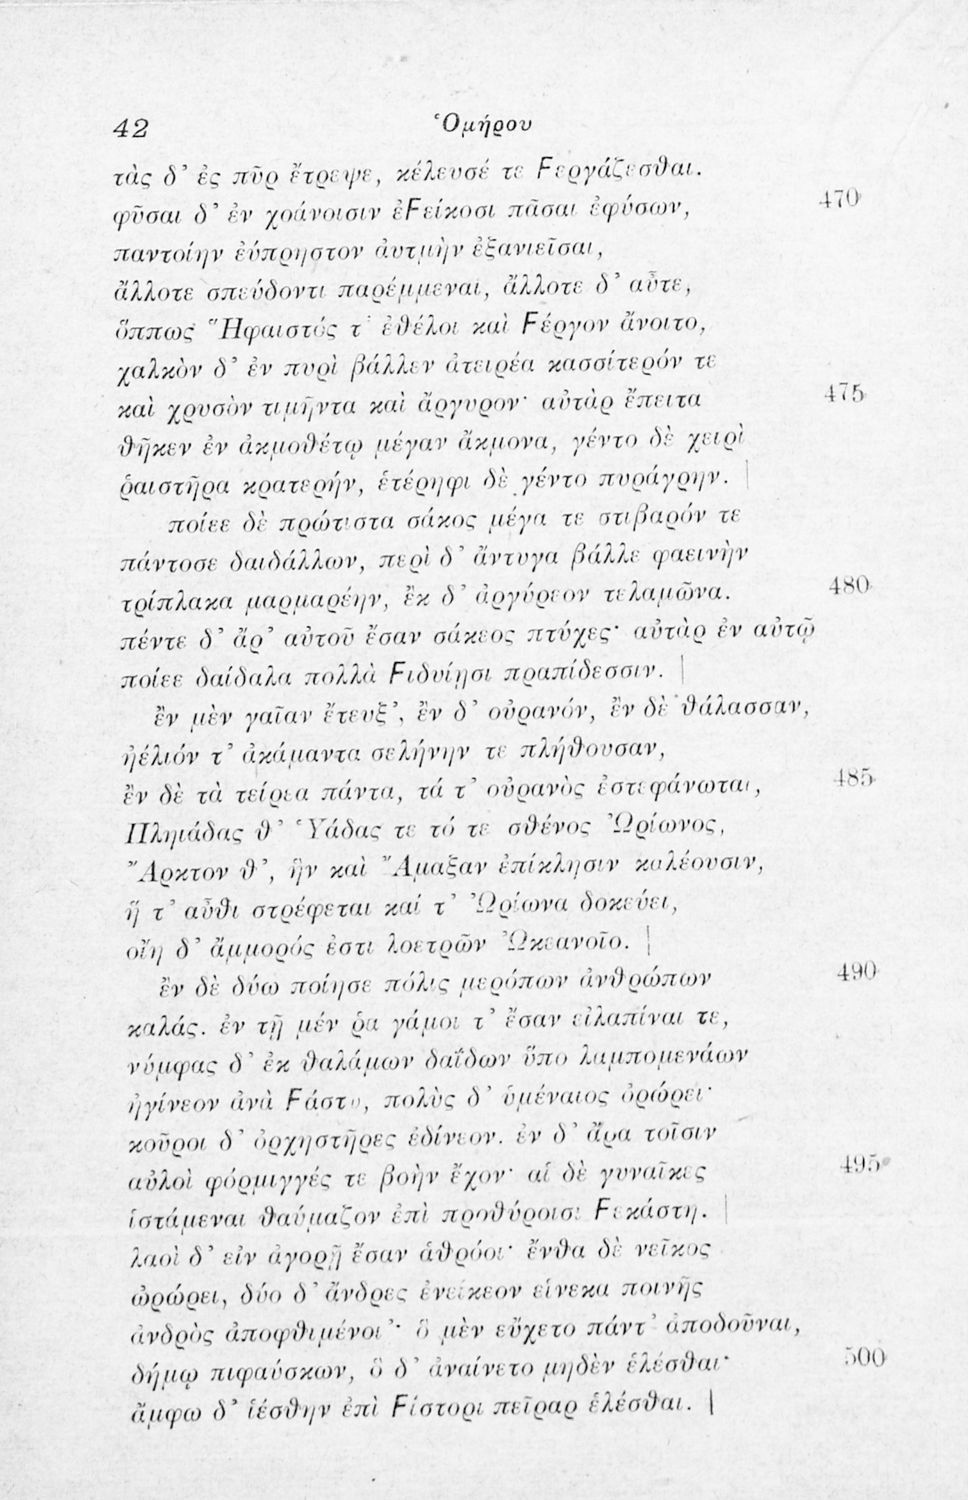 42 Ὁμήρου
τὰς δ᾽ ἐς πῦρ ἔτρεψε, κέλευσέ τε Ϝεργάζεσθαι.
φῦσαι δ᾽ ἐν χοάνοισιν ἐϜείκοσι πᾶσαι ἐφύσων, 470
παντοίην ἐύπρηστον ἀυτμὴν ἐξανιεῖσαι,
ἄλλοτε σπεύδοντι παρέμμεναι, ἄλλοτε δ᾽ αὖτε,
ὅππως Ἥφαιστός τ᾽ ἐθέλοι καὶ Ϝέργον ἄνοιτο,
χαλκὸν δ᾽ ἐν πυρὶ βάλλεν ἀτειρέα κασσίτερόν τε
καὶ χρυσὸν τιμῆντα καὶ ἄργυρον· αὐτὰρ ἔπειτα 475
θῆκεν ἐν ἀκμοθέτῳ μέγαν ἄκμονα, γέντο δὲ χειρὶ
ῥαιστῆρα κρατερήν, ἑτέρηφι δὲ γέντο πυράγρην. |
ποίεε δὲ πρώτιστα σάκος μέγα τε στιβαρόν τε
πάντοσε δαιδάλλων, περὶ δ᾽ ἄντυγα βάλλε φαεινὴν
τρίπλακα μαρμαρέην, ἔκ δ᾽ ἀργύρεον τελαμῶνα. 480
πέντε δ᾽ ἄρ᾽ αὐτοῦ ἔσαν σάκεος πτύχες· αὐτὰρ ἐν αὐτῷ
ποίεε δαίδαλα πολλὰ Ϝιδυίῃσι πραπίδεσσιν. |
ἒν μὲν γαῖαν ἔτευξ᾽, ἒν δ᾽ οὐρανόν, ἒν δὲ θάλασσαν,
ἠέλιόν τ᾽ ἀκάμαντα σελήνην τε πλήθουσαν,
ἒν δὲ τὰ τείρεα πάντα, τά τ᾽ οὐρανὸς ἐστεφάνωται, 485
Πληιάδας θ᾽ Ὑάδας τε τό τε σθένος Ὠρίωνος,
Ἄρκτον θ᾽, ἣν καὶ Ἄμαξαν ἐπίκλησιν καλέουσιν,
ἥ τ᾽ αὖθι στρέφεται καί τ᾽ Ὠρίωνα δοκεύει,
οἴη δ᾽ ἄμμορός ἐστι λοετρῶν Ὠκεανοῖο. |
ἒν δὲ δύω ποίησε πόλις μερόπων ἀνθρώπων 490
καλάς. ἐν τῇ μέν ῥα γάμοι τ᾽ ἔσαν εἰλαπίναι τε,
νύμφας δ᾽ ἐκ θαλάμων δαΐδων ὕπο λαμπομενάων
ἠγίνεον ἀνὰ Ϝάστυ, πολὺς δ᾽ ὑμέναιος ὀρώρει·
κοῦροι δ᾽ ὀρχηστῆρες ἐδίνεον. ἐν δ᾽ ἄρα τοῖσιν
αὐλοὶ φόρμιγγές τε βοὴν ἔχον· αἳ δὲ γυναῖκες 495
ἱστάμεναι θαύμαζον ἐπὶ προθύροισι Ϝεκάστη. |
λαοὶ δ᾽ εἰν ἀγορῇ ἔσαν ἁθρόοι· ἔνθα δὲ νεῖκος
ὠρώρει, δύο δ᾽ ἄνδρες ἐνείκεον εἵνεκα ποινῆς
ἀνδρὸς ἀποφθιμένοι᾽· ὃ μὲν εὔχετο πάντ᾽ ἀποδοῦναι,
δήμῳ πιφαύσκων, ὃ δ᾽ ἀναίνετο μηδὲν ἑλέσθαι· 500
ἄμφω δ᾽ ἱέσθην ἐπὶ Ϝίστορι πεῖραρ ἑλέσθαι. |